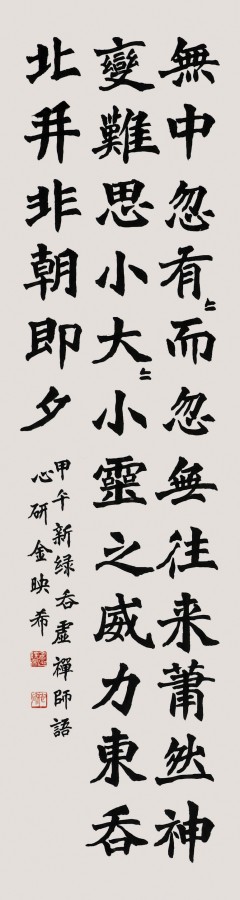 無中忽有〻而忽無往来蕭然神
變難思小大〻小靈之威力東吞
北并非朝即夕
甲午新綠吞虛禪師語
心研金映希